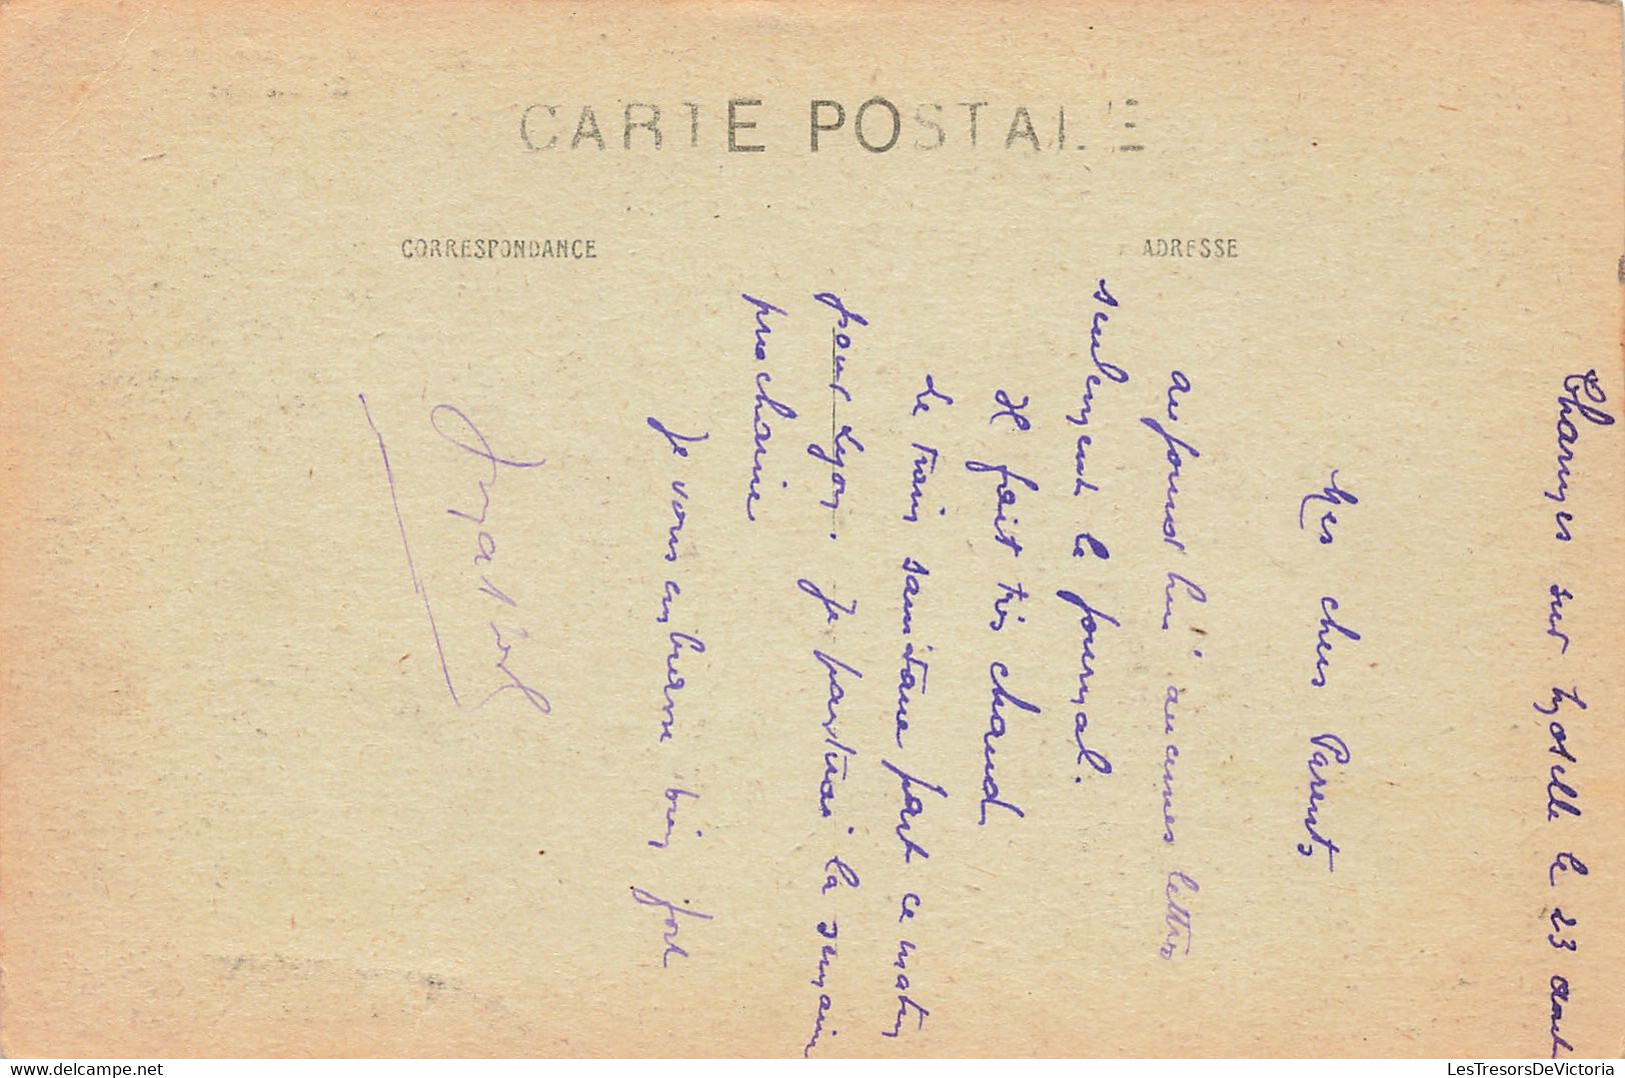 CARTE POSTALE
CORRESPONDANCE
ADRESSE
sur Moselle le 23 aout
Mes chers Parents
aujourd'hui aucunes lettres
seulement le journal.
Il fait très chaud
Le train sanitaire part ce matin
pour Lyon. Je partirai la semaine
prochaine
Je vous embrasse bien fort
LesTresorsDeVictoria